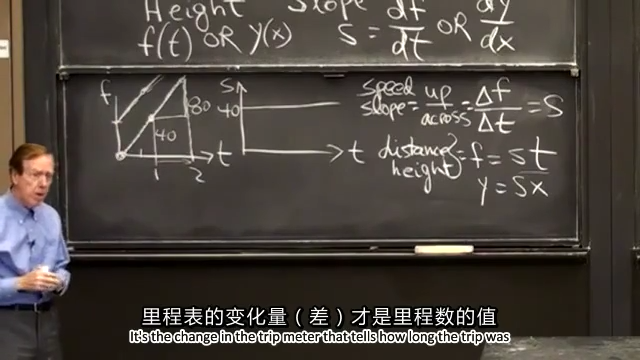 Height Slope
f(t) OR y(x) s = df/dt OR dy/dx
f 80 40 t 1 2
s 40 t
speed slope = up/across = Δf/Δt = S
distance height = f = st
y = sx
里程表的变化量（差）才是里程数的值
It's the change in the trip meter that tells how long the trip was